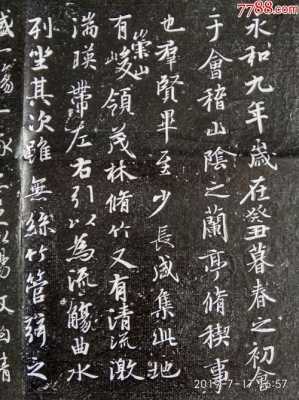 永和九年歲在癸丑暮春之初會
于會稽山陰之蘭亭脩稧事
也羣賢畢至少長咸集此地
有崇山峻領茂林脩竹又有清流激
湍暎帶左右引以為流觴曲水
列坐其次雖無絲竹管弦之
一觴一
7788.com